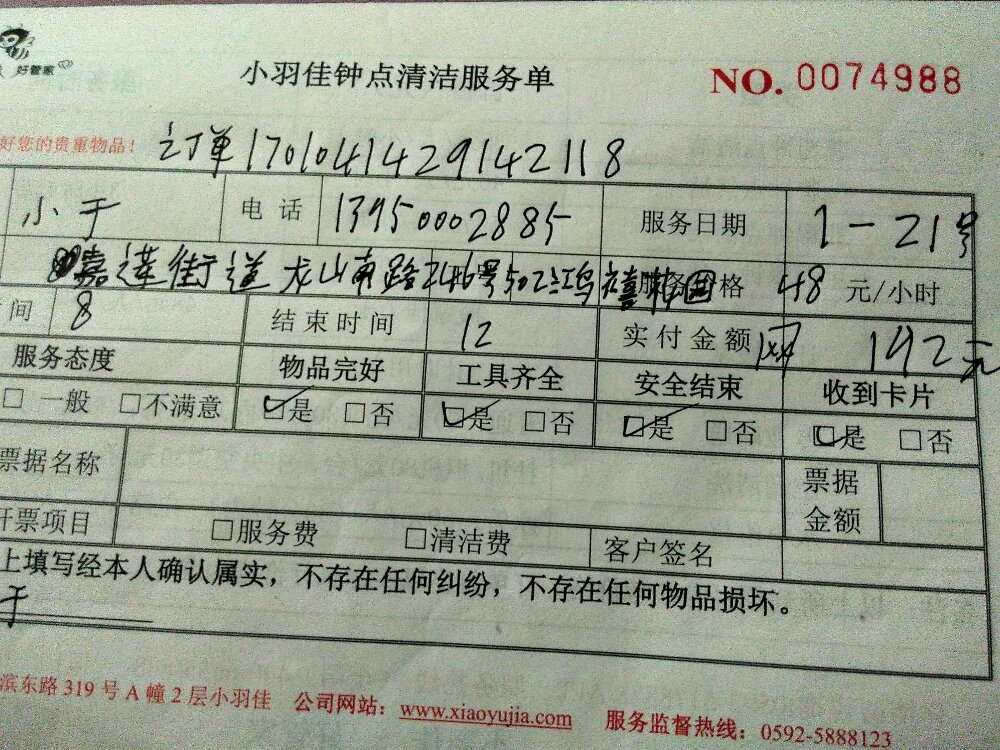 好管家
小羽佳钟点清洁服务单 NO. 0074988
好您的贵重物品! 订单1701041429142118
小于 电话 13950002885 服务日期 1-21号
嘉莲街道龙山南路246号502 服务 格 48 元/小时
间 8 结束时间 12 实付金额 192元
服务态度 物品完好 工具齐全 安全结束 收到卡片
□ 一般 □不满意 ☑是 □否 ☑是 □否 ☑是 □否 ☑是 □否
票据名称 票据金额
开票项目 □服务费 □清洁费 客户签名
上填写经本人确认属实，不存在任何纠纷，不存在任何物品损坏。
于
滨东路 319 号 A 幢 2 层小羽佳 公司网站：www.xiaoyujia.com 服务监督热线：0592-5888123